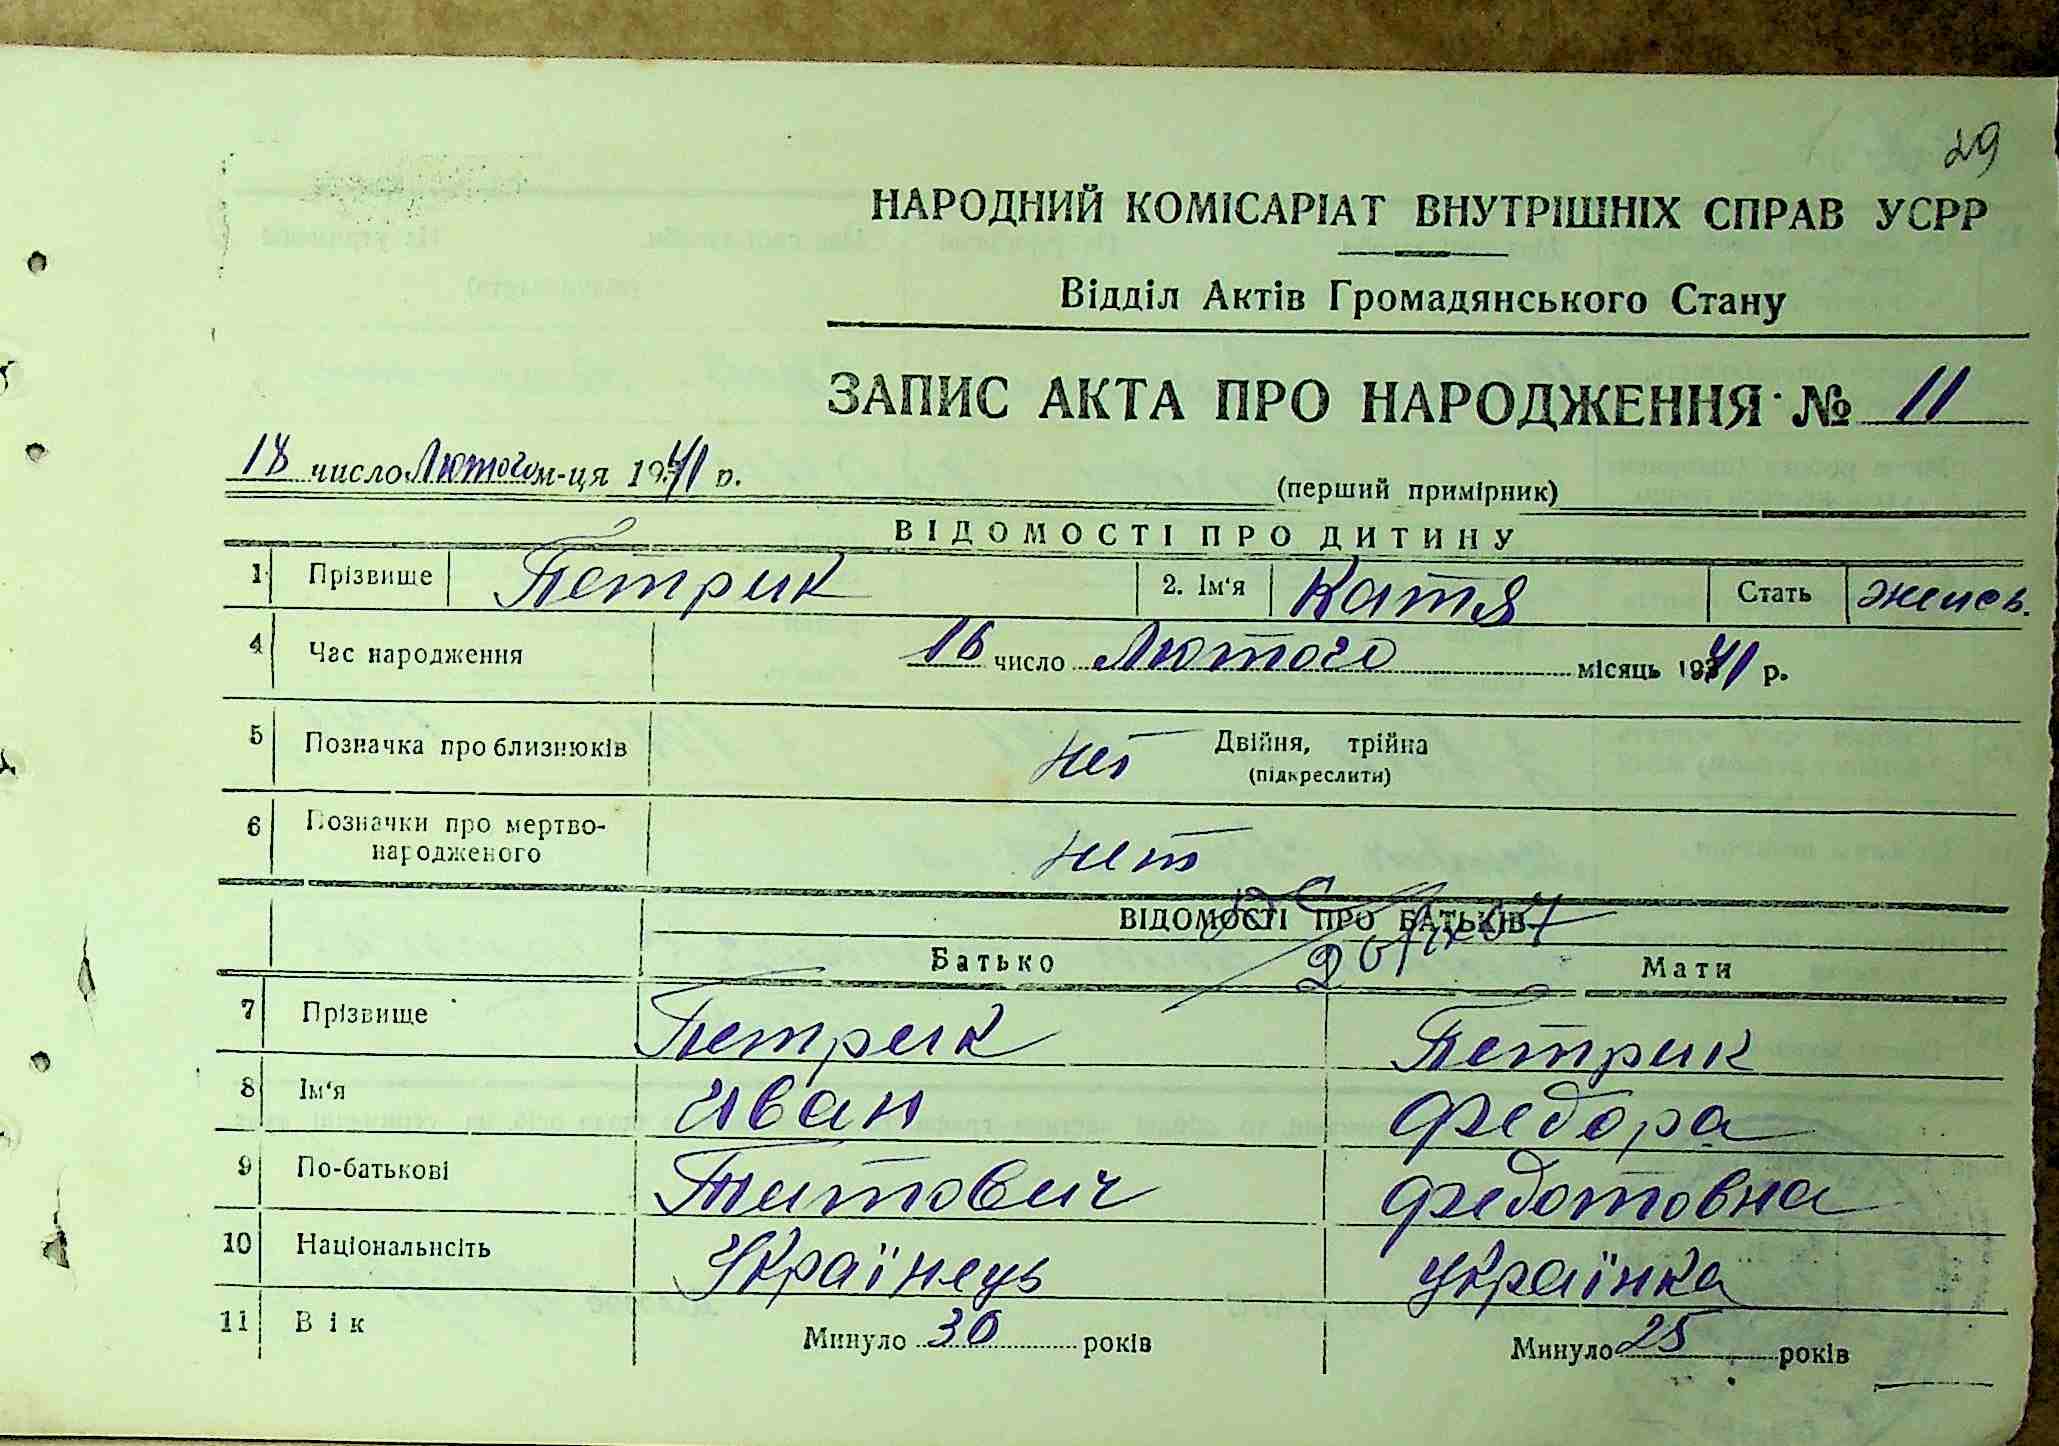 29
НАРОДНИЙ КОМІСАРІАТ ВНУТРІШНІХ СПРАВ УСРР
Відділ Актів Громадянського Стану
ЗАПИС АКТА ПРО НАРОДЖЕННЯ № 11
18 число Лютого м-ця 1941 р.
(перший примірник)
ВІДОМОСТІ ПРО ДИТИНУ
1 Прізвище Петрик 2. Ім'я Катя Стать женсь.
4 Час народження 16 число Лютого місяць 1941 р.
5 Позначка про близнюків нет Двійня, трійна
(підкреслити)
6 Позначки про мертво-
народженого нет
ВІДОМОСТІ ПРО БАТЬКІВ
Батько Мати
7 Прізвище Петрик Петрик
8 Ім'я Иван Федора
9 По-батькові Титович Федотовна
10 Національнсіть Українець українка
11 Вік Минуло 30 років Минуло 25 років